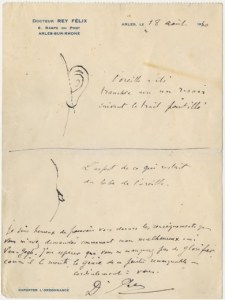 DOCTEUR REY FÉLIX
6, RAMPE DU PONT
ARLES-SUR-RHONE
ARLES, LE 18 août 30
L'oreille a été
tranchée avec un rasoir
suivant le trait pointillé
L'aspect de ce qui restait
du lobe de l'oreille.
Je suis heureux de pouvoir vous donner les renseignements que
vous m'avez demandés concernant mon malheureux ami
Van Gogh. J'ose espérer que vous ne manquerez pas de glorifier
comme il le mérite le génie de ce peintre remarquable,
cordialement à vous.
Dr Rey